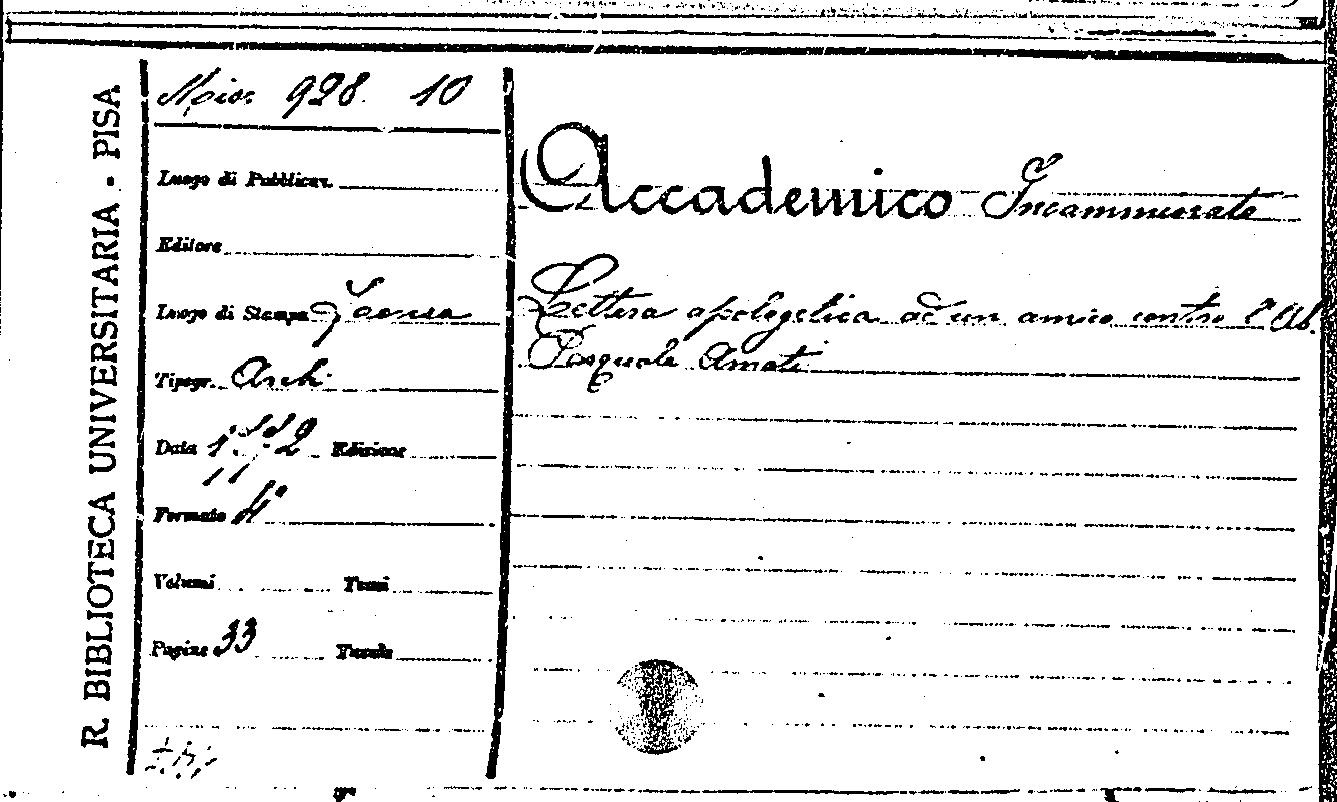 R. BIBLIOTECA UNIVERSITARIA - PISA
Misc. 928. 10
Luogo di Pubblicaz.
Editore
Luogo di Stampa Faenza
Tipogr. Archi
Data 1772 Edizione
Formato 4°
Volumi Tomi
Pagine 33 Tavole
Accademico Incamminato
Lettera apologetica ad un amico contro l'Ab.
Pasquale Amati